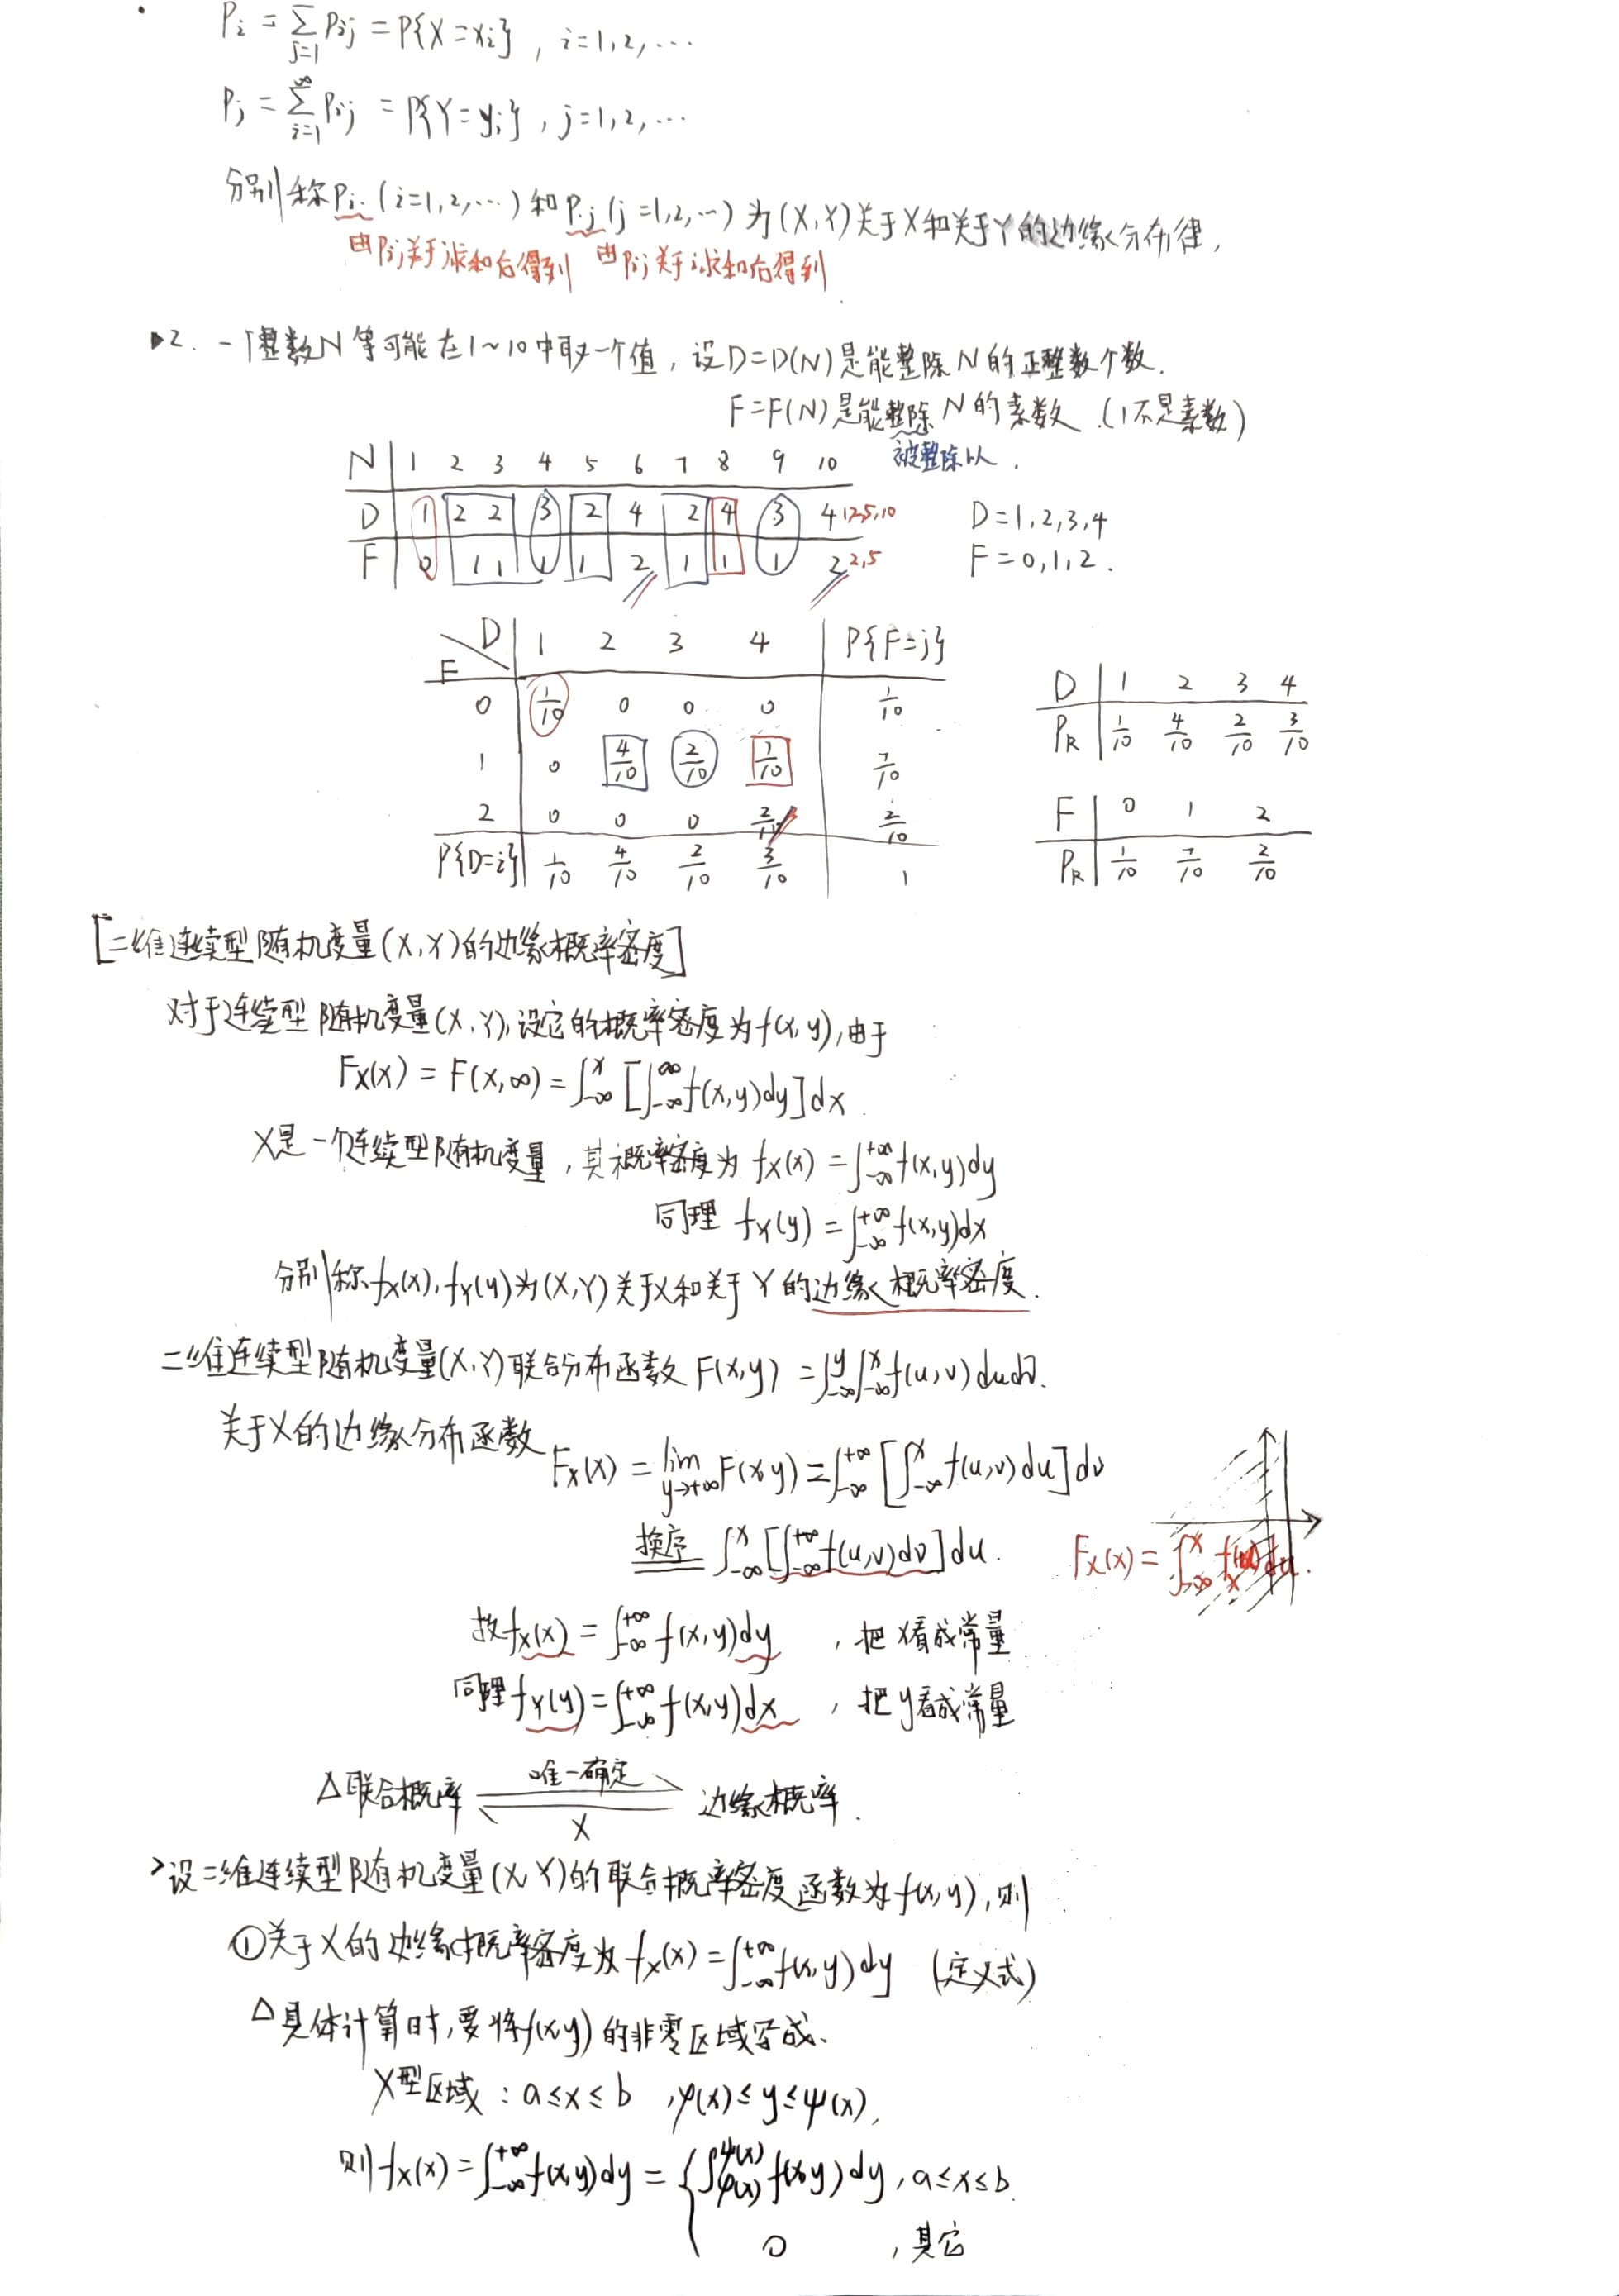 P_i = Σ_{j=1} P_ij = P{X=x_i}, i=1,2,…
P_j = Σ_{i=1}^∞ P_ij = P{Y=y_j}, j=1,2,…
分别称P_i. (i=1,2,…) 和 P._j (j=1,2,…) 为 (X,Y) 关于X和关于Y的边缘分布律,
由P_ij关于j求和后得到 由P_ij关于i求和后得到
▶2. 一个整数N等可能在1~10中取一个值, 设D=D(N)是能整除N的正整数个数.
F=F(N)是能整除N的素数.(1不是素数)
被整除以.
N 1 2 3 4 5 6 7 8 9 10
D 1 2 2 3 2 4 2 4 3 4 1,2,5,10 D=1,2,3,4
F 0 1 1 1 1 2 1 1 1 2 2,5 F=0,1,2.
F\D 1 2 3 4 P{F=j}
0 1/10 0 0 0 1/10
1 0 4/10 2/10 1/10 7/10
2 0 0 0 2/10 2/10
P{D=i} 1/10 4/10 2/10 3/10 1
D 1 2 3 4
P_k 1/10 4/10 2/10 3/10
F 0 1 2
P_k 1/10 7/10 2/10
[二维连续型随机变量(X,Y)的边缘概率密度]
对于连续型随机变量(X,Y),设它的概率密度为f(x,y),由于
F_X(x) = F(x,∞) = ∫_{-∞}^{x} [∫_{-∞}^{∞} f(x,y)dy]dx.
X是一个连续型随机变量, 其概率密度为 f_X(x) = ∫_{-∞}^{+∞} f(x,y)dy
同理 f_Y(y) = ∫_{-∞}^{+∞} f(x,y)dx
分别称f_X(x), f_Y(y)为(X,Y)关于X和关于Y的边缘概率密度.
二维连续型随机变量(X,Y)联合分布函数 F(x,y) = ∫_{-∞}^{y}∫_{-∞}^{x} f(u,v)dudv.
关于X的边缘分布函数 F_X(x) = lim_{y→+∞} F(x,y) = ∫_{-∞}^{+∞} [∫_{-∞}^{x} f(u,v)du]dv
换序 ∫_{-∞}^{x} [∫_{-∞}^{+∞} f(u,v)dv]du. F_X(x) = ∫_{-∞}^{x} f_X(u)du.
故f_X(x) = ∫_{-∞}^{+∞} f(x,y)dy , 把x看成常量
同理f_Y(y) = ∫_{-∞}^{+∞} f(x,y)dx , 把y看成常量
△联合概率 唯一确定 边缘概率.
X
>设二维连续型随机变量(X,Y)的联合概率密度函数为f(x,y),则
①关于X的边缘概率密度为 f_X(x) = ∫_{-∞}^{+∞} f(x,y)dy (定义式)
△具体计算时,要将f(x,y)的非零区域写成.
X型区域 : a≤x≤b , φ(x)≤y≤ψ(x),
则f_X(x) = ∫_{-∞}^{+∞} f(x,y)dy = { ∫_{φ(x)}^{ψ(x)} f(x,y)dy, a≤x≤b.
0 , 其它